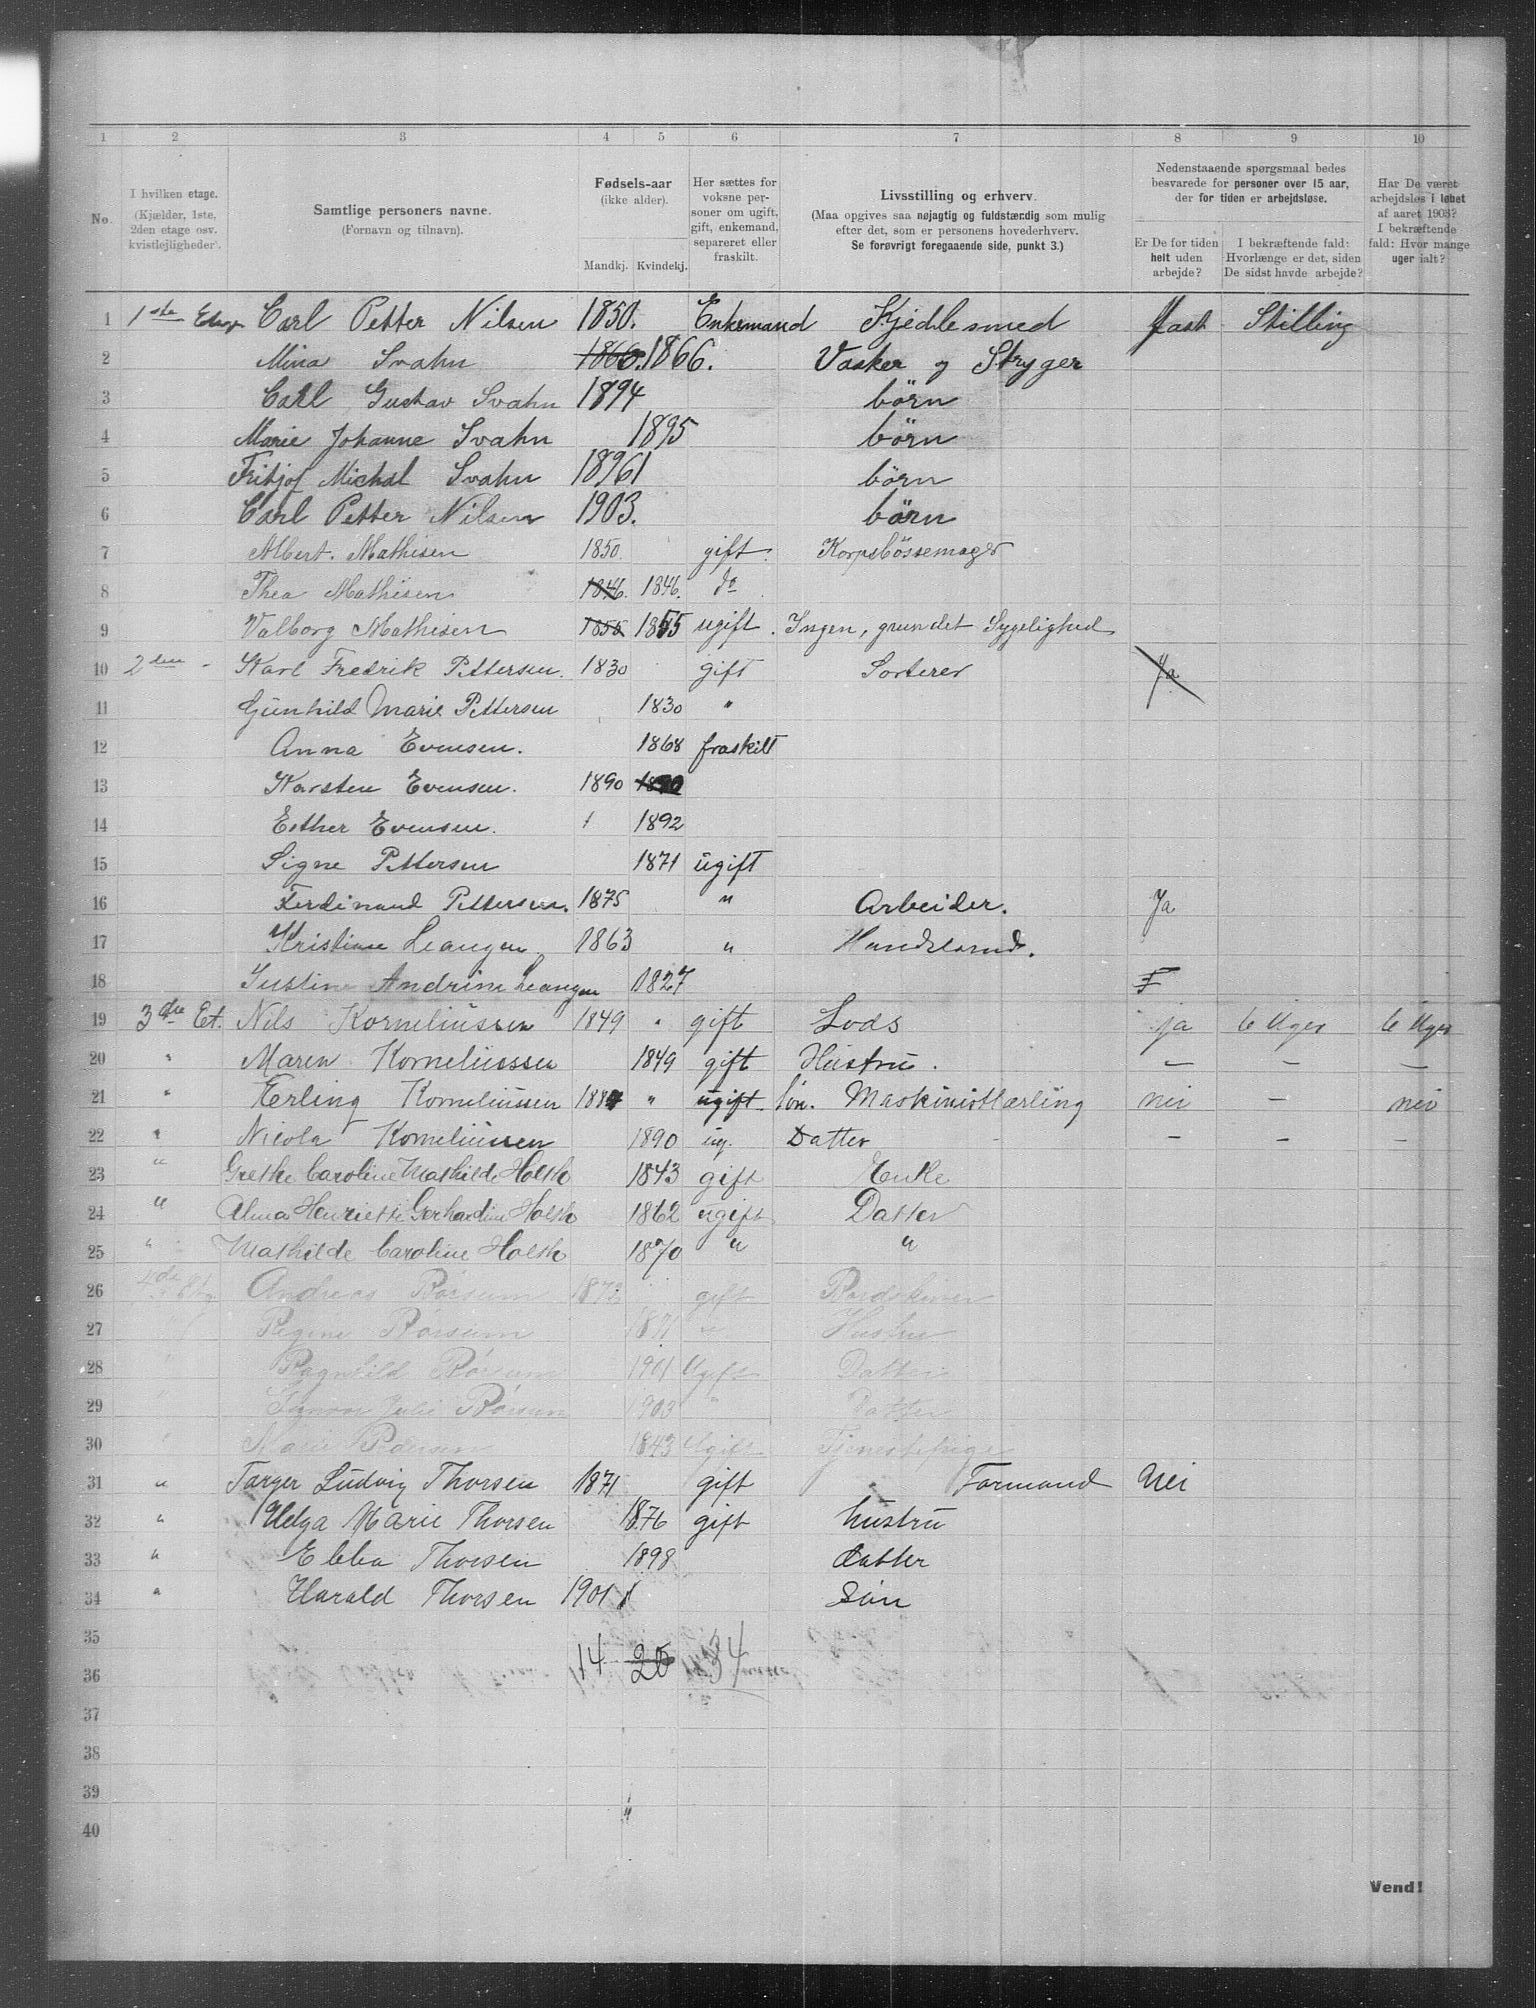 1 2 3 4 5 6 7 8 9 10
No. I hvilken etage. (Kjælder, 1ste, 2den etage osv. kvistlejligheder). Samtlige personers navne. (Fornavn og tilnavn). Fødsels-aar (ikke alder). Mandkj. Kvindekj. Her sættes for voksne personer om ugift, gift, enkemand, separeret eller fraskilt. Livsstilling og erhverv. (Maa opgives saa nøjagtig og fuldstændig som mulig efter det, som er personens hovederhverv. Se forøvrigt foregaaende side, punkt 3.) Nedenstaaende spørgsmaal bedes besvarede for personer over 15 aar, der for tiden er arbejdsløse. Er De for tiden helt uden arbejde? I bekræftende fald: Hvorlænge er det, siden De sidst havde arbejde? Har De været arbejdsløs i løbet af aaret 1903? I bekræftende fald: Hvor mange uger ialt?
1 1ste Etage Carl Petter Nilsen 1850. Enkemand Kjedlesmed fast Stilling
2 Mina Svahn 1866. 1866. Vasker og Stryger
3 Carl Gustav Svahn 1894 börn
4 Marie Johanne Svahn 1895 börn
5 Fritjof Michal Svahn 1896 1 börn
6 Carl Petter Nilsen 1903. börn
7 Albert Mathisen 1850 gift. Korpsbössemager
8 Thea Mathisen 1846. 1846. do
9 Valborg Mathisen 1855 1855 ugift. Ingen, grundet Sygelighed
10 2den - Karl Fredrik Pettersen. 1830 gift Sorterer Ja
11 Gunhild Marie Pettersen 1830 "
12 Anna Evensen. 1868 fraskilt
13 Karsten Evensen. 1890 1890
14 Esther Evensen. 1 1892
15 Signe Pettersen 1871 ugift
16 Ferdinand Pettersen. 1875 " Arbeider. Ja
17 Kristian Leangen 1863 "
18 Justine Andrine Leangen 1827 F
19 3die Et. Nils Korneliussen 1849 " gift Lods ja 6 Uger 6 Uger
20 " Maren Korneliussen 1849 gift Hustru. — — —
21 " Erling Korneliussen 1887 " ugift. Søn. Maskinistlærling nei — nei
22 " Nicola Korneliussen 1890 ug. Datter - — — —
23 " Grethe Caroline Mathilde Holth 1843 gift Enke
24 " Alma Henriette Gerhardine Holth 1862 ugift Datter
25 " Mathilde Caroline Holth 1870 " "
26 4de Etg Andreas Rørsum 1872 gift
27 " Regine Rørsum 1871 " Hustru
28 " Ragnhild Rørsum 1901 Ugift Datter
29 " Julie Rørsum 1903 " Datter
30 " Marie Rørsum 1843 Ugift Tjenestepige
31 " Targer Ludvig Thorsen 1871 gift Formand Nei
32 " Helga Marie Thorsen 1876 gift hustru
33 " Ebba Thorsen 1898 datter
34 " Harald Thorsen 1901 1 søn
35
36 14 20 34
37
38
39
40
Vend!